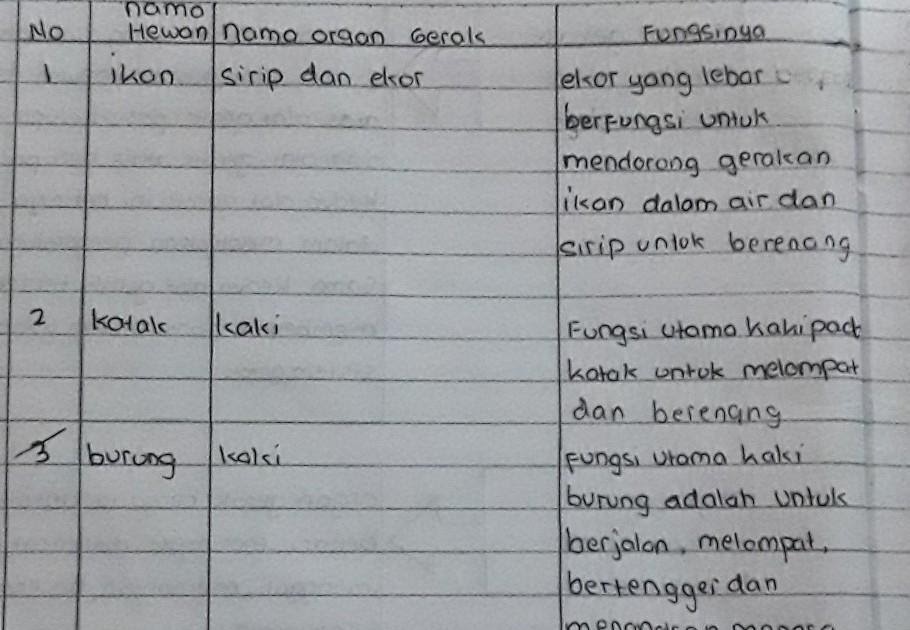 nama
No Hewan nama organ Gerak Fungsinya
1 ikan sirip dan ekor ekor yang lebar
berfungsi untuk
mendorong gerakan
ikan dalam air dan
sirip untuk berenang
2 katak kaki Fungsi utama kaki pad
katak untuk melompat
dan berenang
3 burung kaki Fungsi utama kaki
burung adalah untuk
berjalan, melompat,
bertengger dan